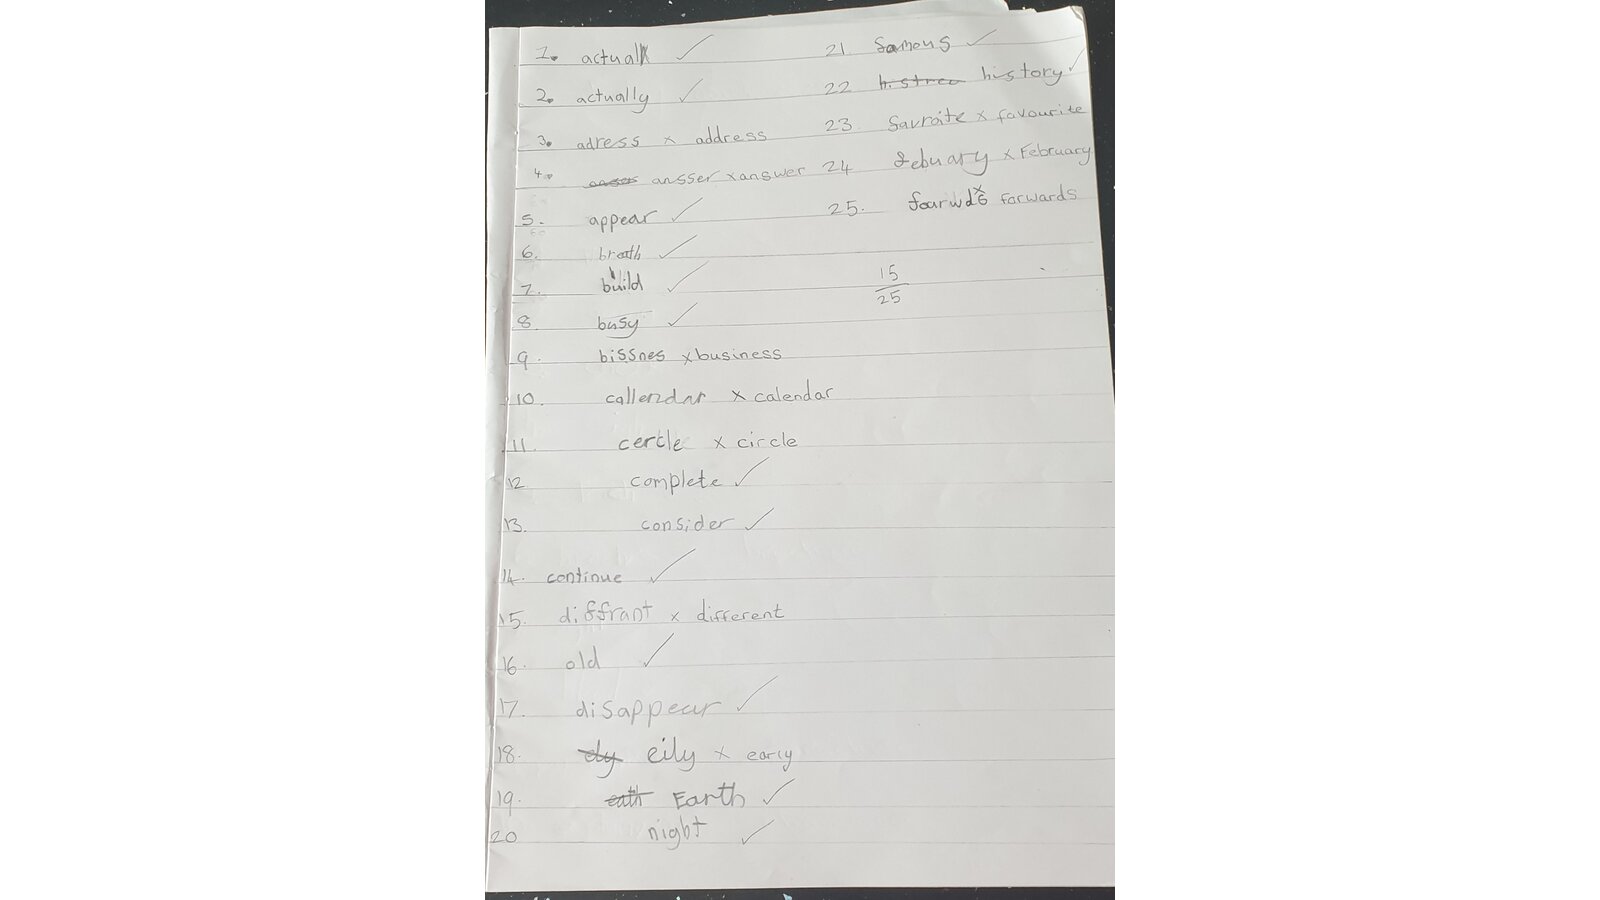 1. actual ✓
2. actually ✓
3. adress x address
4. ansser x answer
5. appear ✓
6. breath ✓
7. build ✓
8. busy ✓
9. bissnes x business
10. callendar x calendar
11. certle x circle
12 complete ✓
13. consider ✓
14. continue ✓
15. diffrant x different
16. old ✓
17. disappear ✓
18. eily x early
19. eath Earth ✓
20 night ✓
21 famous ✓
22 histreo history ✓
23. favroite x favourite
24 febuary x February
25. fourwds x forwards
15
25